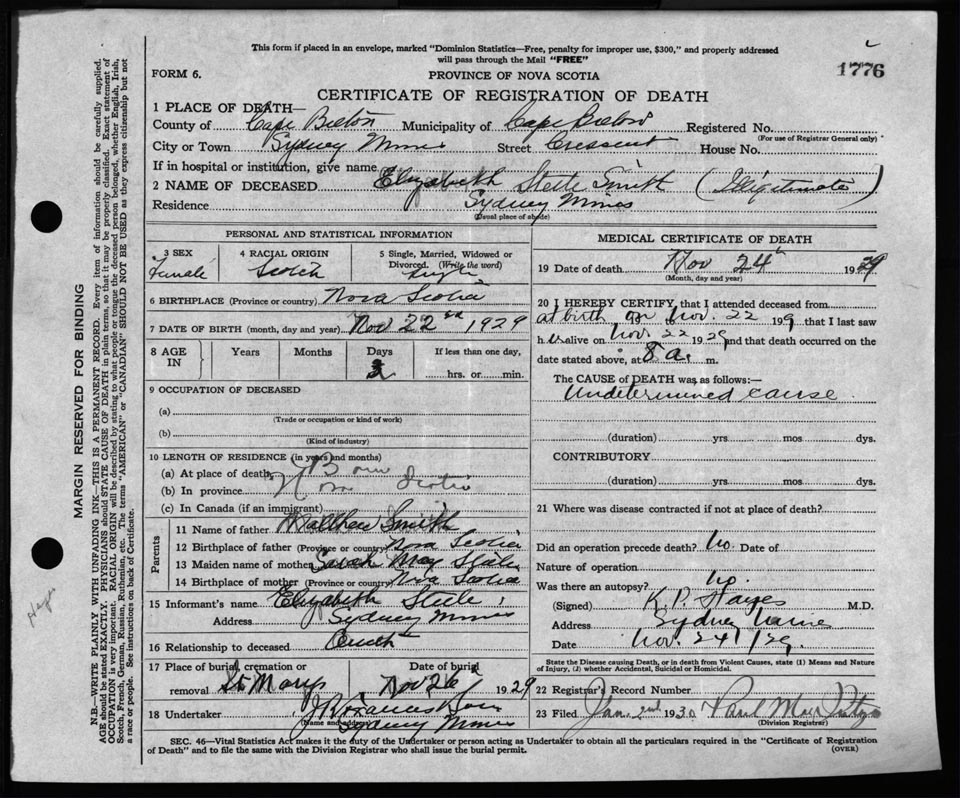 This form if placed in an envelope, marked "Dominion Statistics—Free, penalty for improper use, $300," and properly addressed
will pass through the Mail "FREE"
1776
FORM 6.
PROVINCE OF NOVA SCOTIA
CERTIFICATE OF REGISTRATION OF DEATH
1 PLACE OF DEATH—
County of Cape Breton Municipality of Cape Breton Registered No.
(For use of Registrar General only)
City or Town Sydney Mines Street Crescent House No.
If in hospital or institution, give name
2 NAME OF DECEASED Elizabeth Steele Smith (Illigitimate)
Residence Sydney Mines
(Usual place of abode)
PERSONAL AND STATISTICAL INFORMATION
3 SEX Female
4 RACIAL ORIGIN Scotch
5 Single, Married, Widowed or
Divorced. (Write the word) Single
6 BIRTHPLACE (Province or country) Nova Scotia
7 DATE OF BIRTH (month, day and year) Nov 22nd 1929
8 AGE IN
Years Months Days If less than one day,
2 hrs. or min.
9 OCCUPATION OF DECEASED
(a)
(Trade or occupation or kind of work)
(b)
(Kind of industry)
10 LENGTH OF RESIDENCE (in years and months)
(a) At place of death Born
(b) In province Nova Scotia
(c) In Canada (if an immigrant)
Parents
11 Name of father Matthew Smith
12 Birthplace of father (Province or country) Nova Scotia
13 Maiden name of mother Sarah May Steele
14 Birthplace of mother (Province or country) Nova Scotia
15 Informant's name Elizabeth Steele
Address Sydney Mines
16 Relationship to deceased
17 Place of burial, cremation or Date of burial
removal St Marys Nov 26 1929
18 Undertaker
(Name and address)
Sydney Mines
MEDICAL CERTIFICATE OF DEATH
19 Date of death Nov 24th 1929
(Month, day and year)
20 I HEREBY CERTIFY, that I attended deceased from
at birth on Nov. 22 199 that I last saw
h er alive on Nov. 22 1929 and that death occurred on the
date stated above, at 8 a. m.
The CAUSE of DEATH was as follows:—
Undetermined cause
(duration) yrs mos dys.
CONTRIBUTORY
(duration) yrs mos dys.
21 Where was disease contracted if not at place of death?
Did an operation precede death? No Date of
Nature of operation
Was there an autopsy? No.
(Signed) K.P. Hayes M.D.
Address Sydney Mines
Date Nov. 24/29
State the Disease causing Death, or in death from Violent Causes, state (1) Means and Nature
of Injury, (2) whether Accidental, Suicidal or Homicidal.
22 Registrar's Record Number
23 Filed Jan. 2nd 1930 Paul
(Division Registrar)
SEC. 46—Vital Statistics Act makes it the duty of the Undertaker or person acting as Undertaker to obtain all the particulars required in the "Certificate of Registration
of Death" and to file the same with the Division Registrar who shall issue the burial permit.
(OVER)
MARGIN RESERVED FOR BINDING
N.B.—WRITE PLAINLY WITH UNFADING INK—THIS IS A PERMANENT RECORD. Every item of information should be carefully supplied.
AGE should be stated EXACTLY. PHYSICIANS should STATE CAUSE OF DEATH in plain terms, so that it may be properly classified. Exact statement of
OCCUPATION is very important. RACIAL ORIGIN will be described by stating to what people or tongue the deceased person belonged, whether English, Irish,
Scotch, French, German, Russian, Ruthenian, etc. The terms "AMERICAN" or "CANADIAN" SHOULD NOT BE USED as they express citizenship but not
a race or people. See instructions on back of Certificate.